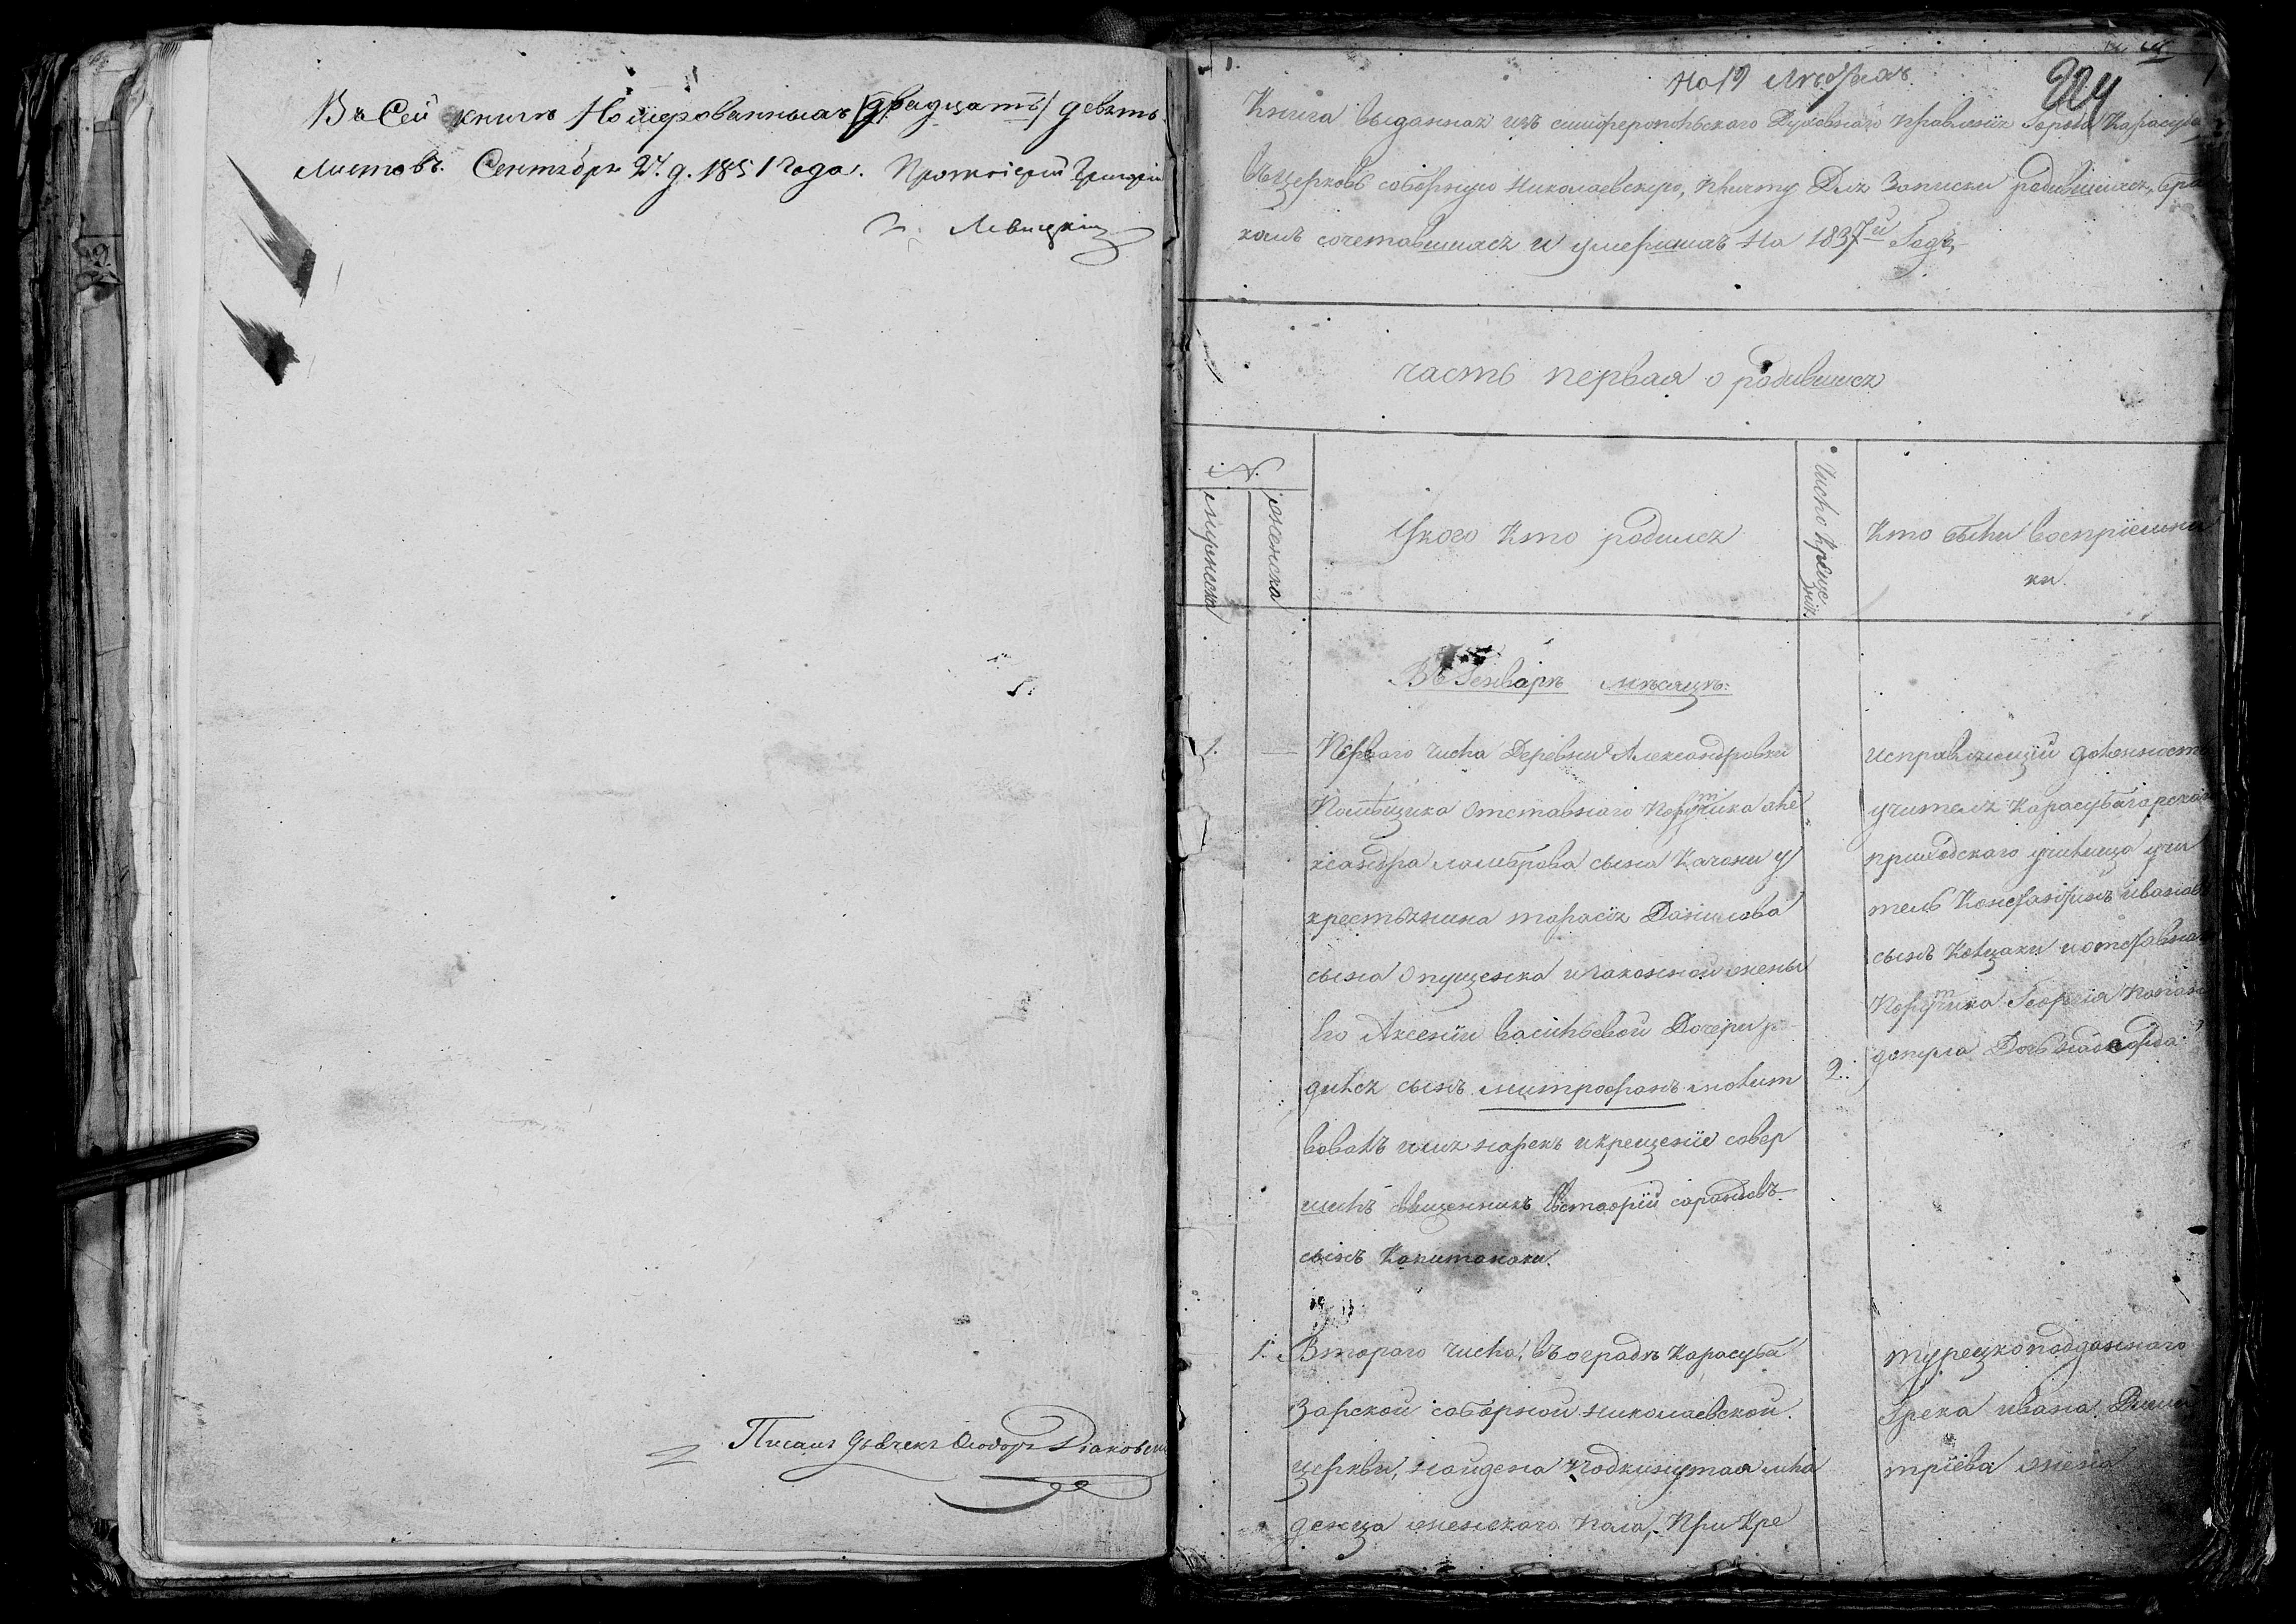 Въ Сей книгѣ Номерованныхъ /двадцать/ девять
Листовъ. Сентября 27. д. 1851 года. Протоіерей Григорій
Левицкій
Писалъ Дьячекъ Ѳеодоръ Діаковскі
1.
На 19 листахъ.
224
Книга выданная изъ симферопольскаго Духовнаго правленія Города Карасуба
въ церковь соборную николаевскую, причту Для Записки родившихся, бра
комъ сочетавшихся и умершихъ На 1837й Годъ,
часть первая о родившихся
№.
мужеска
женска
Укого Кто родился
Число Креще
нія.
Кто были воспріемни
ки.
Въ Генварѣ мѣсяцѣ:
1. — Перваго числа Деревни Александровки
Помѣщика отставнаго Поручика Але
ксандра ламброва сына Качони у
крестьянина тарасія Данилова
сына Опущенка и законной жены
Его Аксеніи васильевой Дочери ро
дился сынъ митрофанъ молит
вовалъ имя нарекъ и крещеніе совер
шилъ священникъ сарандовъ
сынъ Капитанаки.
2.
исправляющій должность
учителя Карасубазарскаго
приходскаго училища учи
тель Константинъ иванов
сынъ Колцаки и отставна
Поручика Георгія Папан
допула Дочь
1. Втораго числа, въ оградѣ Карасуба
Зарской соборной николаевской
церкви, найдена подкинутая мла
денца женскаго пола, При Кре
турецкоподданнаго
Грека ивана Дими
тріева жена